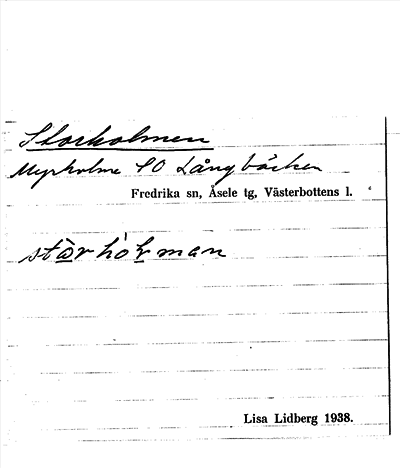 Storholmen
Myrholme SO Långbäcken
Fredrika sn, Åsele tg, Västerbottens l.
stårhòḷman
Lisa Lidberg 1938.